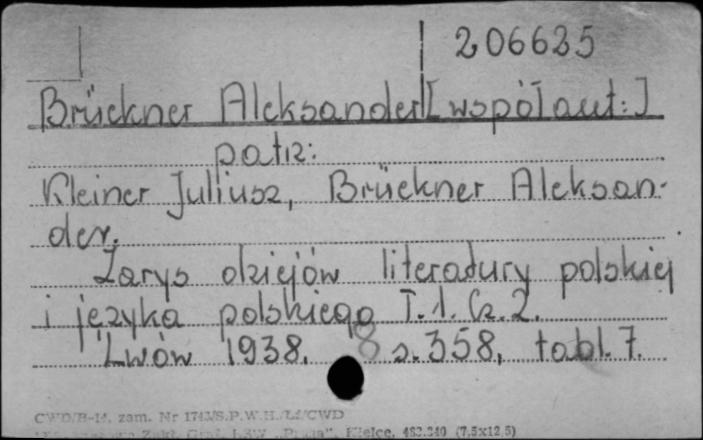 206625
Brückner Aleksander [współaut:]
patrz:
Kleiner Juliusz, Brückner Aleksan-
der.
Zarys dziejów literatury polskiej
i języka polskiego T.1. Cz.2.
Lwów 1938. 8 s.358, tabl.7.
CWD/B-14, zam. Nr 1743/S.P.W.H./Ld/CWD
Zakł. Graf. Kielce, (7,5x12,5)